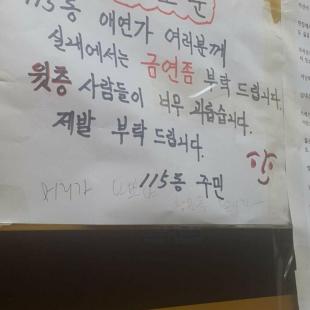 115동 애연가 여러분께
실내에서는 금연좀 부탁 드립니다.
윗층 사람들이 너무 괴롭습니다.
제발 부탁 드립니다.
115동 주민